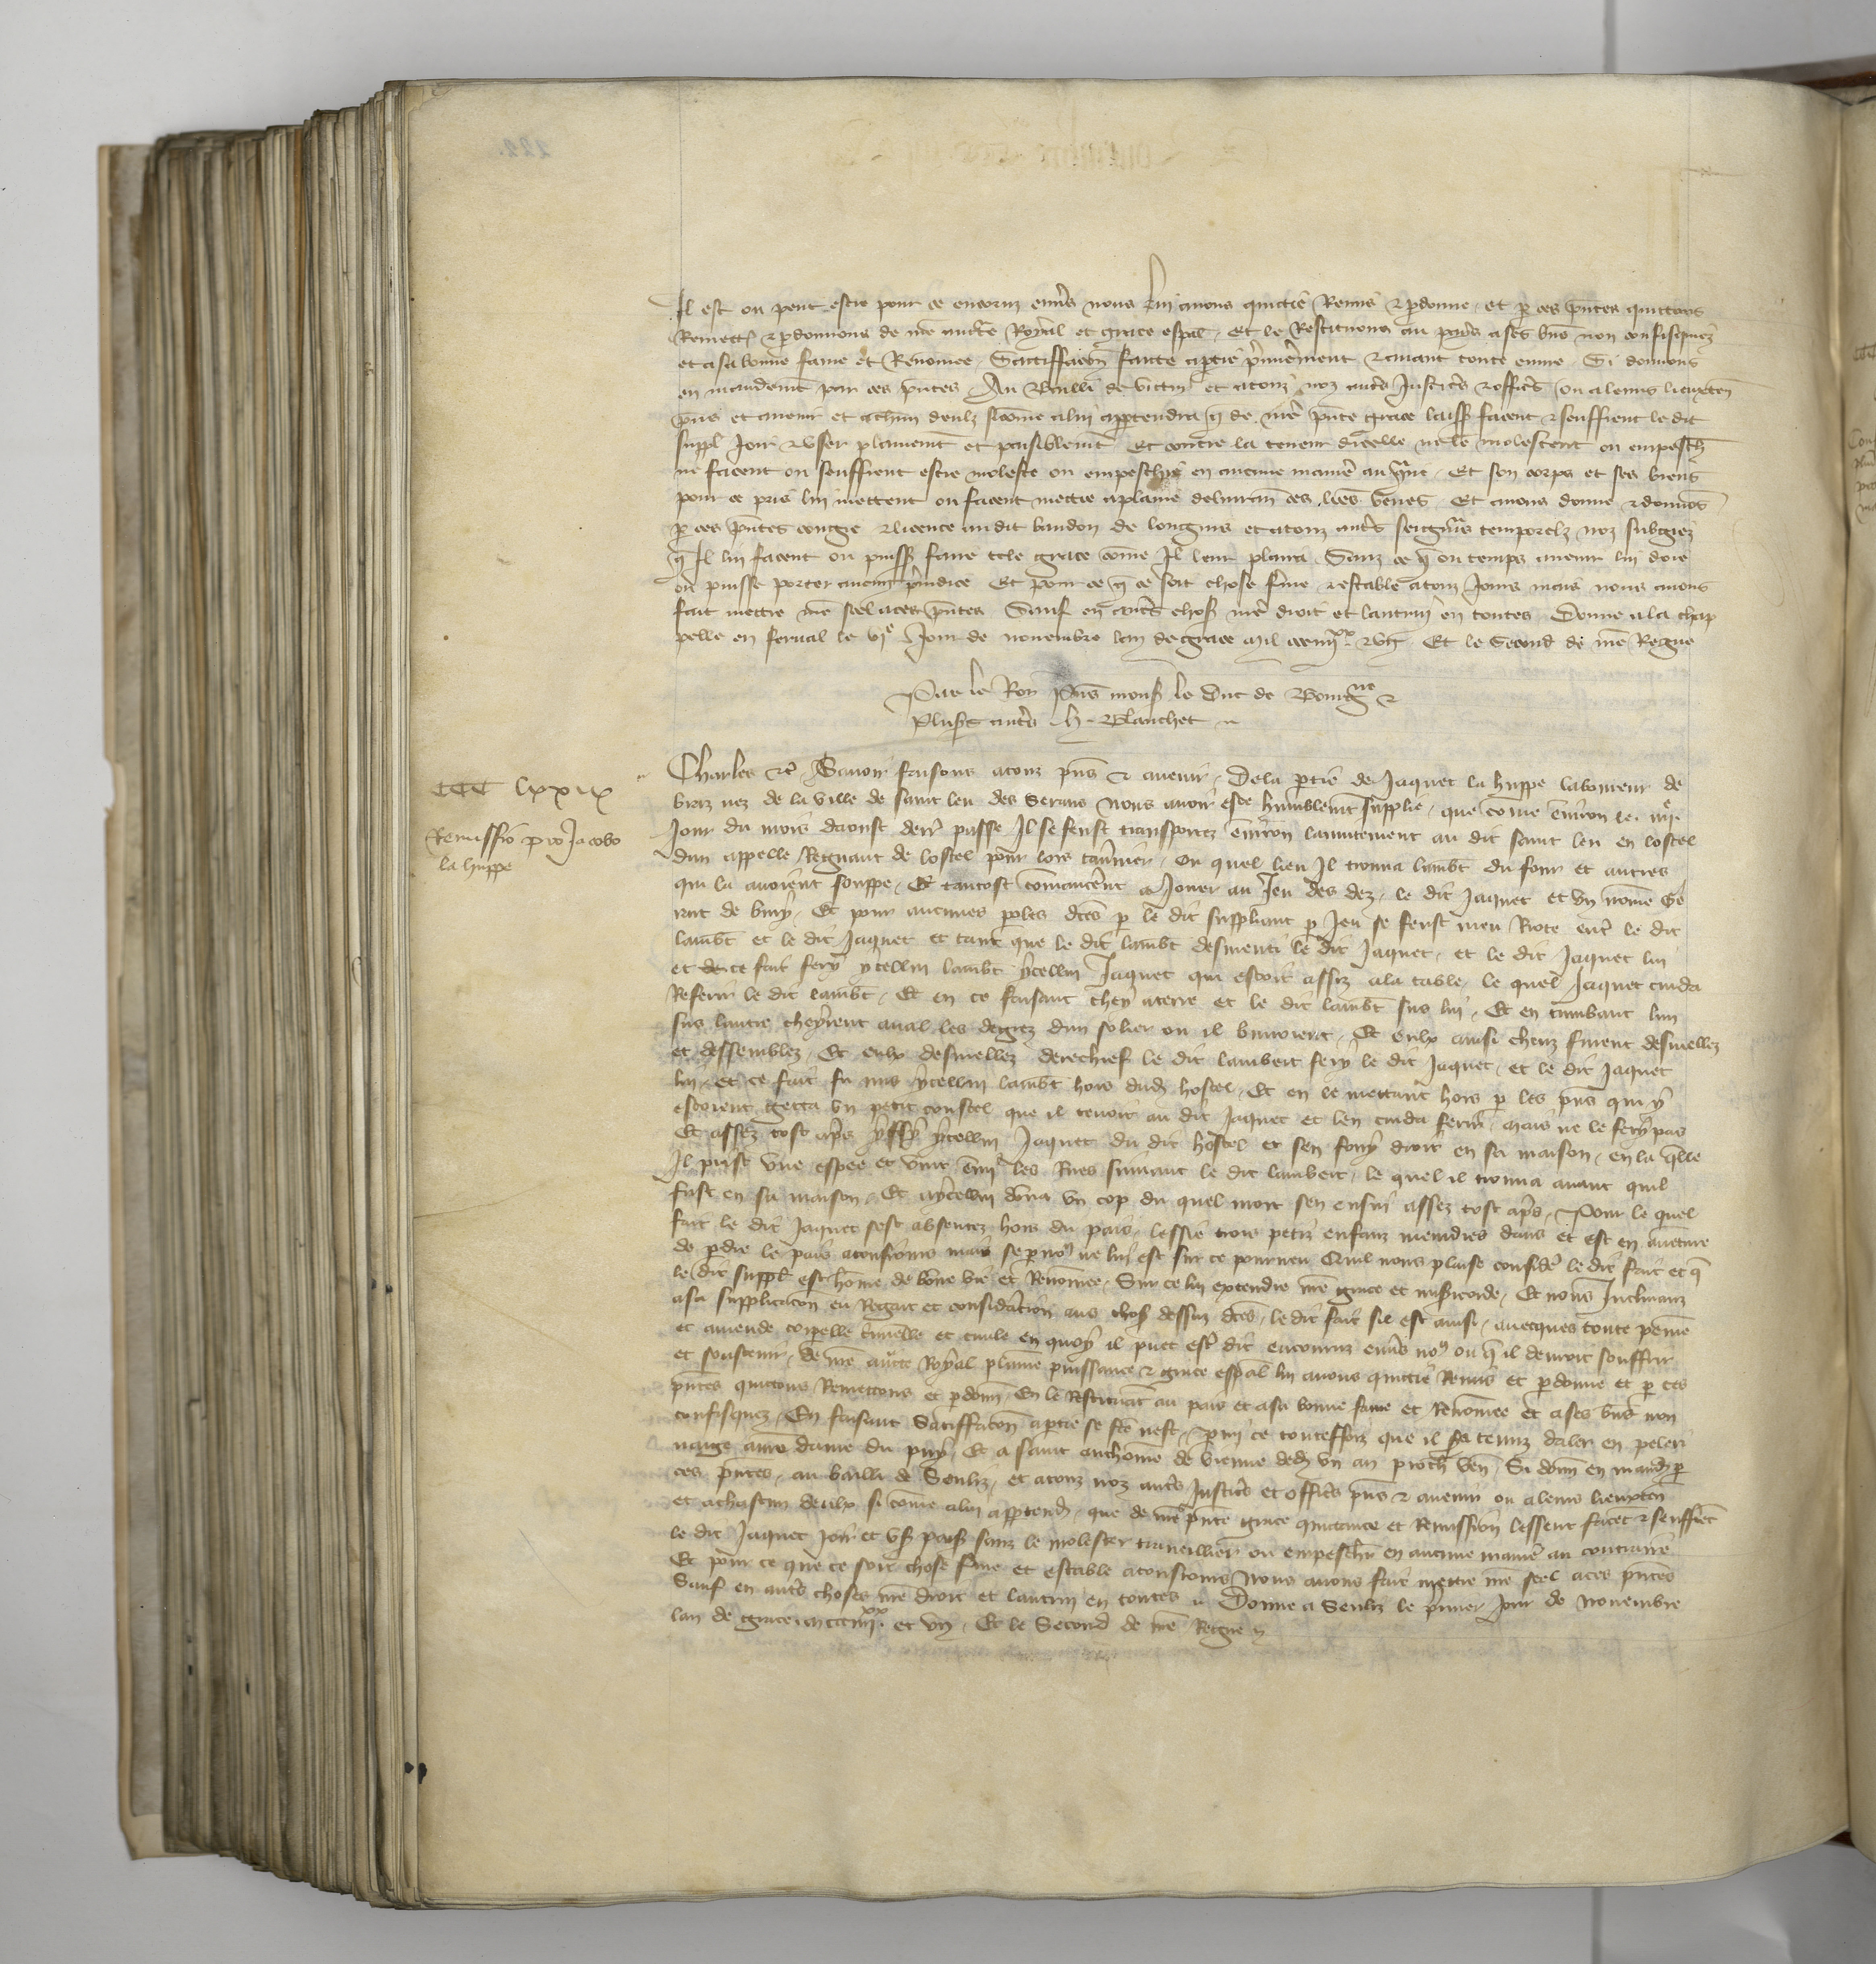 Il est ou peut estre pour ce encouru envs nous lui avons quictie Remis & pdonne et p ces pntes quictons
Remett & pdonnons de nre auctte Royal et grace espal Et le Restituons au pays a ses biens non confisquez
et a sa bonne fame et Renomee Satisffacon faicte a ptie pmierement & avant toute euvre Si donnons
en mandemt par ces pntes Au Bailli de et a touz noz autrs Justicrs & officrs ou a leurs lieuxten
pns et avenir et a chun deulz si come a lui apptendra q de nre pnte grace laissf facent & seuffrent le dit
suppl Joir & user plainemt et paisiblemt Et contre la teneur dicelle ne le molestent ou empesch
ne facent ou seuffrent estre moleste ou empeschie en aucune maniere au contre Et son corps et ses biens
pour ce pris lui mettent ou facent mettre a plaine delivran ces lres veues Et avons donne & donnos
p ces pntes congie & licence au dit bandon de longms et a touz autrs seigneurs temporelz noz subgiez
q Il lui facent ou puissf faire tele grace come Il leur plaira Sanz ce q ou temps avenir lui doie
ou puisse porter aucun preiudice Et pour ce q ce soit chose ferme & estable a touz Jours mais nous avons
fait mettre nre seel a ces pntes Sauf en autrs chosf nre droit et lautruy en toutes Donne a la chap
pelle en serval le vje Jour de novembre lan de grace mil ccciiijxx & un Et le Second de nre Regne
Par le Roy Pns monsf le duc de Bourgne &
Plusrs autrs h. Blanchet
CCC lxxix
Remissio pro Jacobo
la huppe
Charles &c Savoir faisons a touz pns & avenir De la ptie de Jaquet la huppe laboureur de
braz nez de la ville de saint leu des Serans Nous avoir este humblemt supplie que come environ le iije
Jour du mois daoust derr passe Il se feust transportez environ lanuitement au dit saint leu en lostel
dun appelle Regnaut de lostel pour lors tavrnier Ou quel lieu Il trouva lambt du four et autres
qui la avoient souppe Et tantost comancerent a Jouer au Jeu des dez le dit Jaquet et un nome Ge
rart de bury Et pour aucunes poles dces p le dit suppliant p Jeu se feust meu Riote entre le dit
lambt et le dit Jaquet et tant que le dit lambt desmenti le dit Jaquet et le dit Jaquet lui
et de ce fait fery ycellui lambt ycellui Jaquet qui estoit assiz a la table le quel Jaquet cuida
Referir le dit lambt Et en ce faisant chey a terre et le dit lambt sus lui Et en tumbant lun
sus lautre cheyrent aval les degrez dun solier ou il buvoient Et eulx ainsi cheuz furent desmellez
et dessemblez Et eulx desmellez derechief le dit lambert fery le dit Jaquet et le dit Jaquet
lui et ce fait fu mis ycellui lambt hors dud hostel Et en le mettant hors p les pns qui y
estoient getta un petit coustel que il tenoit au dit Jaquet et len cuida ferir mais ne le fery pas
Et assez tost aprs yssy ycellui Jaquet du dit hostel et sen fouy droit en sa maison en la qlle
Il prist une espee et vint emi les Rues suivant le dit lambert le quel il trouva avant quil
fust en sa maison Et a ycellui dona un cop du quel mort sen ensui assez tost aprs Pour le quel
fait le dit Jaquet sest absentez hors du pais lessie trois petiz enfanz meindres dans et est en aventure
de pdre le pais a tousiours mais se p nous ne lui est sur ce pourveu Quil nous plaise considerer le dit fait et q
le dit suppl est home de bone vie et Renomee Sur ce lui extendre nre grace et misericorde Et nous Inclinanz
a sa supplicacon eu Regart et consideration aus chosf dessus dces le dit fait se il est ainsi avecques toute peine
et amende corpelle crimelle et civile en quoy il puet estre dit encouruz envs nous ou q il devroit souffrir
et soustenir De nre auctte Royal plaine puissance & grace espal lui avons quictie Remis et pdonne et p ces
pntes quictons Remettons et pdonn En le Restituant au pais et a sa bonne fame et Renomee et a ses biens non
confisquez En faisant Satisffacon a ptie se fce nest Pmi ce touteffoiz que il sa tenuz daler en peleri
nage a nre dame du puy Et a saint anthoine de Vienne dedz un an proch ven Si donn en mand p
ces pntes au bailli de Senliz et a touz noz autrs Justicrs et officrs pns & avenir ou a leurs lieuxten
et a chascun deulx si come a lui apptend que de nre pnte grace quictance et Remission lessent facet & seuffret
le dit Jaquet Joir et usf paisf sanz le molester travaillier ou empescher en aucune maniere au contraire
Et pour ce que ce soit chose ferme et estable a tousiours Nous avons fait mettre nre seel a ces pntes
Sauf en autrs choses nre droit et lautruy en toutes Donne a Senliz le pmier Jour de Novembre
lan de grace m ccciiijxx et un Et le Second de nre Regne